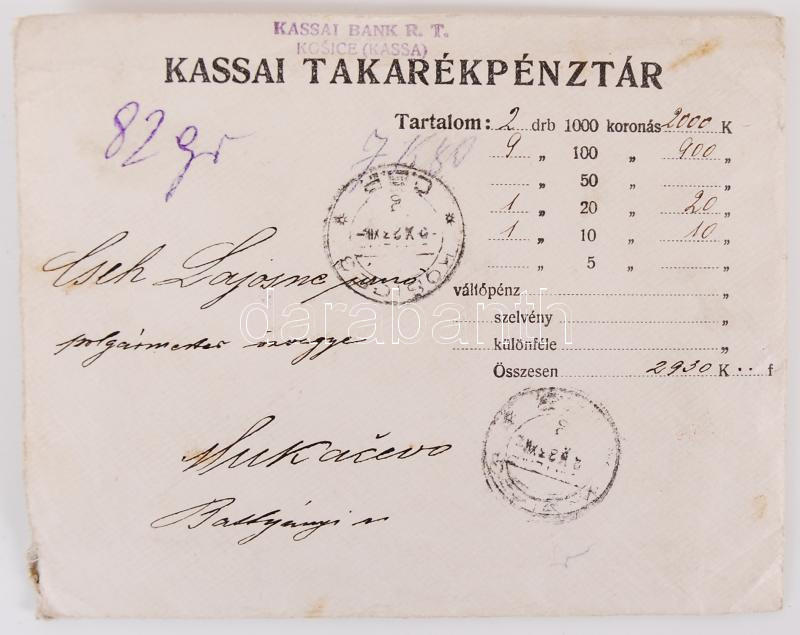 KASSAI BANK R. T.
KOŠICE (KASSA)
KASSAI TAKARÉKPÉNZTÁR
82 gr
7 K 80
Tartalom: 2 drb 1000 koronás 2000 K
9 „ 100 „ 900 „
„ 50 „ „
1 „ 20 „ 20 „
1 „ 10 „ 10 „
„ 5 „ „
váltópénz „
szelvény „
különféle „
Összesen 2930 K .. f
KOŠICE
Cseh Lajosne
polgármester özvegye
Mukačevo
Batthyányi u
darabanth